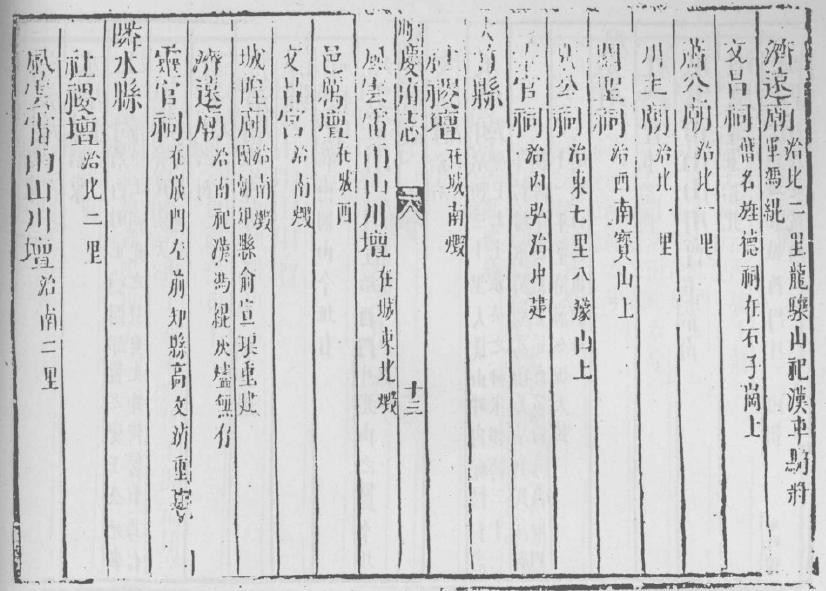 濟遠廟治北二里龍驤山祀漢車騎將
軍馮緄
文昌祠舊名雄德祠在石子崗上
蕭公廟治北一里
川主廟治北一里
關聖祠治西南寶山上
公祠治東七里八濛山上
官祠治內弘治中建
縣
社稷壇在城南燬
順慶府志 十三
風雲雷雨山川壇在城東北燬
邑厲壇在城西
文昌宮治南燬
城隍廟治南燬
國朝知縣俞宣琅重建
濟遠廟治南祀漢馮緄灰燼無存
靈官祠在儀門左前知縣高文
鄰水縣
社稷壇治北二里
風雲雷雨山川壇治南二里